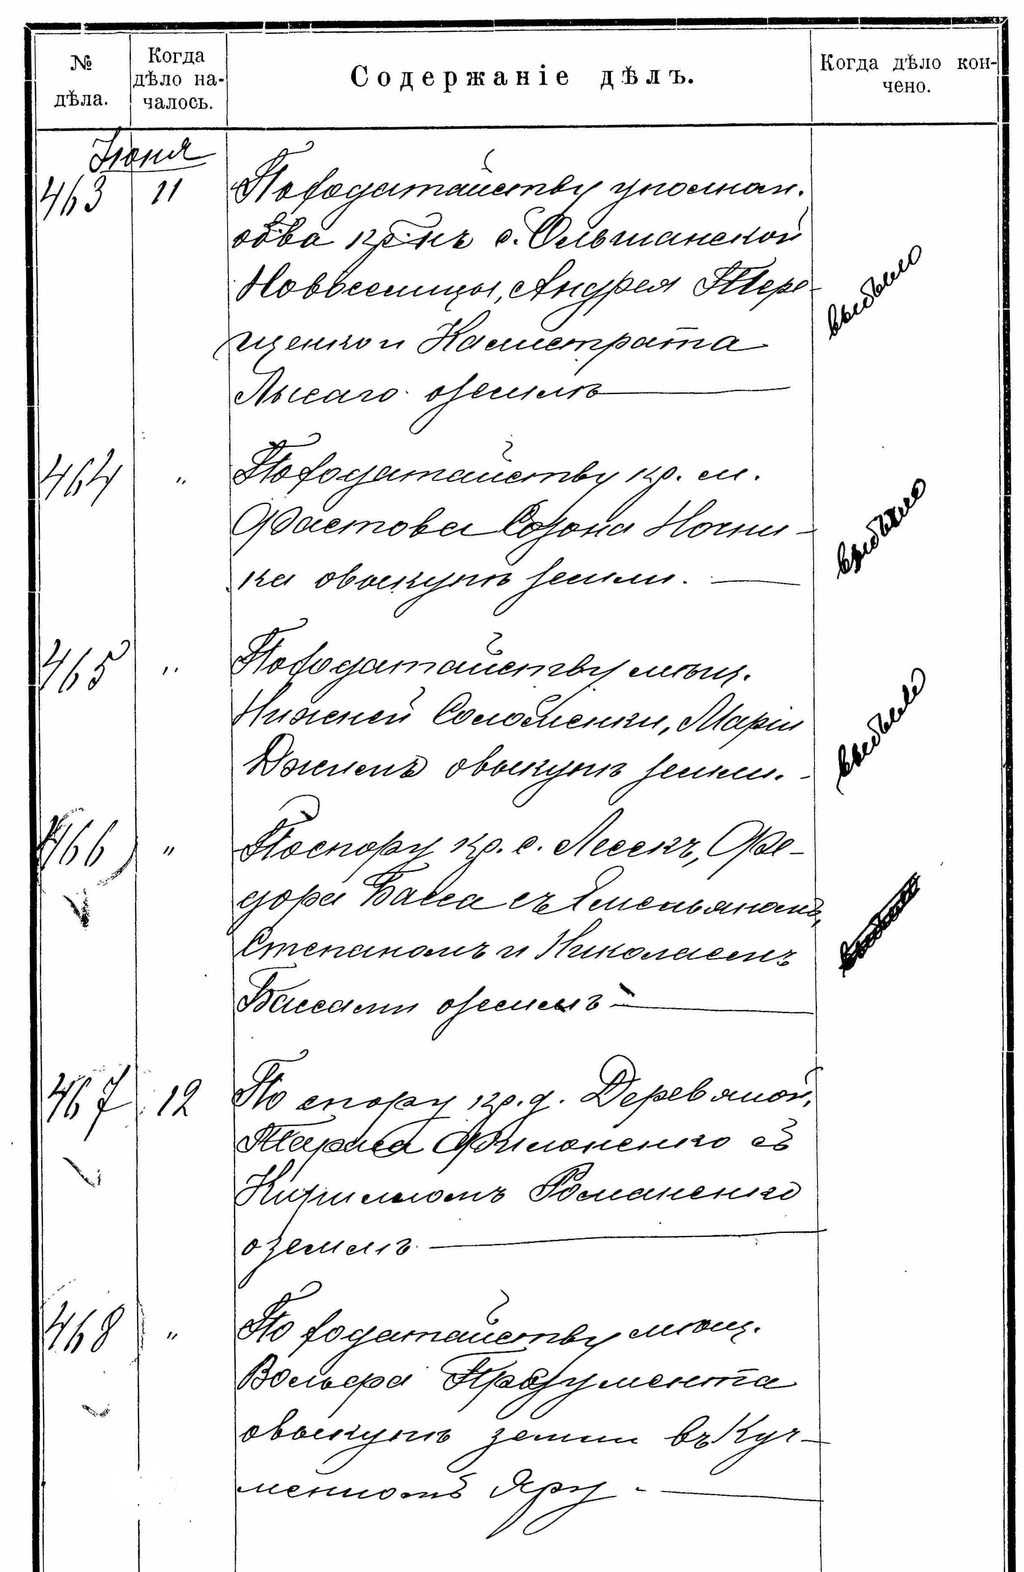 № дѣла.
Когда дѣло на-
чалось.
Содержаніе дѣлъ.
Когда дѣло кон-
чено.
Іюня
463 11 По ходатайству уполном.
об-ва кр-нъ с. Ольшанской
Новоселицы, Андрея Тере-
щенко и Калистрата
Лысаго о землѣ
выбыло
464 " По ходатайству кр. м.
Фастова Созона Ночни-
ка о выкупѣ земли.
выбыло
465 " По ходатайству мѣщ.
Нижней Соломенки, Маріи
о выкупѣ земли.
выбыло
466 " По спору кр. с. Лесекъ, Фе-
дора Басса съ Емельяномъ,
Степаномъ и Николаемъ
Бассами о землѣ
467 12 По спору кр. д. Деревяной,
Тараса Филоненко съ
Кирилломъ Романенко
о землѣ
468 " По ходатайству мѣщ.
Вольфа Прозумента
о выкупѣ земли въ Куч-
менномъ Яру